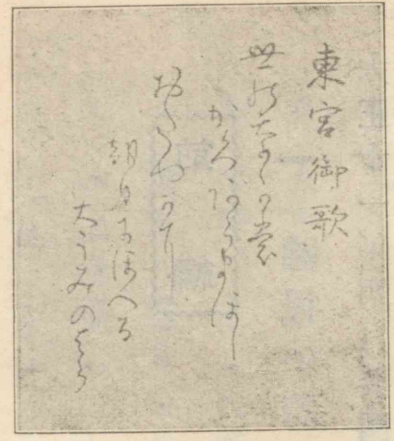 東宮御歌
世の中も
かくあらまほし
おたやかに
朝日にほへる
大うみのはら